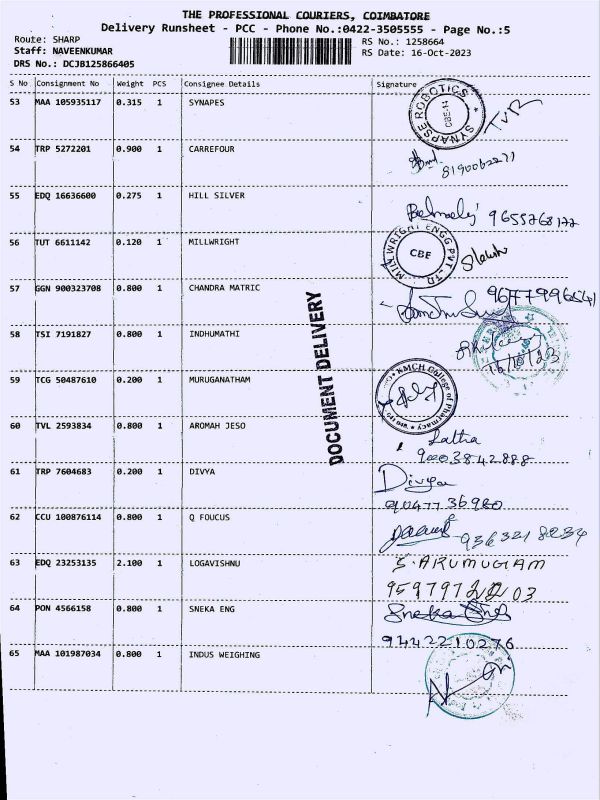 THE PROFESSIONAL COURIERS, COIMBATORE
Delivery Runsheet - PCC - Phone No.:0422-3505555 - Page No.:5
Route: SHARP
Staff: NAVEENKUMAR
DRS No.: DCJB125866405
RS No.: 1258664
RS Date: 16-Oct-2023
S No Consignment No Weight PCS Consignee Details Signature
53 MAA 105935117 0.315 1 SYNAPES
SYNAPSE ROBOTICS
CBE-14
54 TRP 5272201 0.900 1 CARREFOUR
55 EDQ 16636600 0.275 1 HILL SILVER
9655768177
56 TUT 6611142 0.120 1 MILLWRIGHT
MILLWRIGHT ENGG PVT. LTD
CBE
57 GGN 900323708 0.800 1 CHANDRA MATRIC
9677996541
58 TSI 7191827 0.800 1 INDHUMATHI
16/10/23
59 TCG 50487610 0.200 1 MURUGANATHAM
KMCH College of Pharmacy
60 TVL 2593834 0.800 1 AROMAH JESO
Latha
9003842888
61 TRP 7604683 0.200 1 DIVYA
Divya
9047736980
62 CCU 100876114 0.800 1 Q FOUCUS
9363218234
63 EDQ 23253135 2.100 1 LOGAVISHNU
S. ARUMUGAM
64 PON 4566158 0.800 1 SNEKA ENG
Sneka Eng
9442210276
65 MAA 101987034 0.800 1 INDUS WEIGHING
DOCUMENT DELIVERY